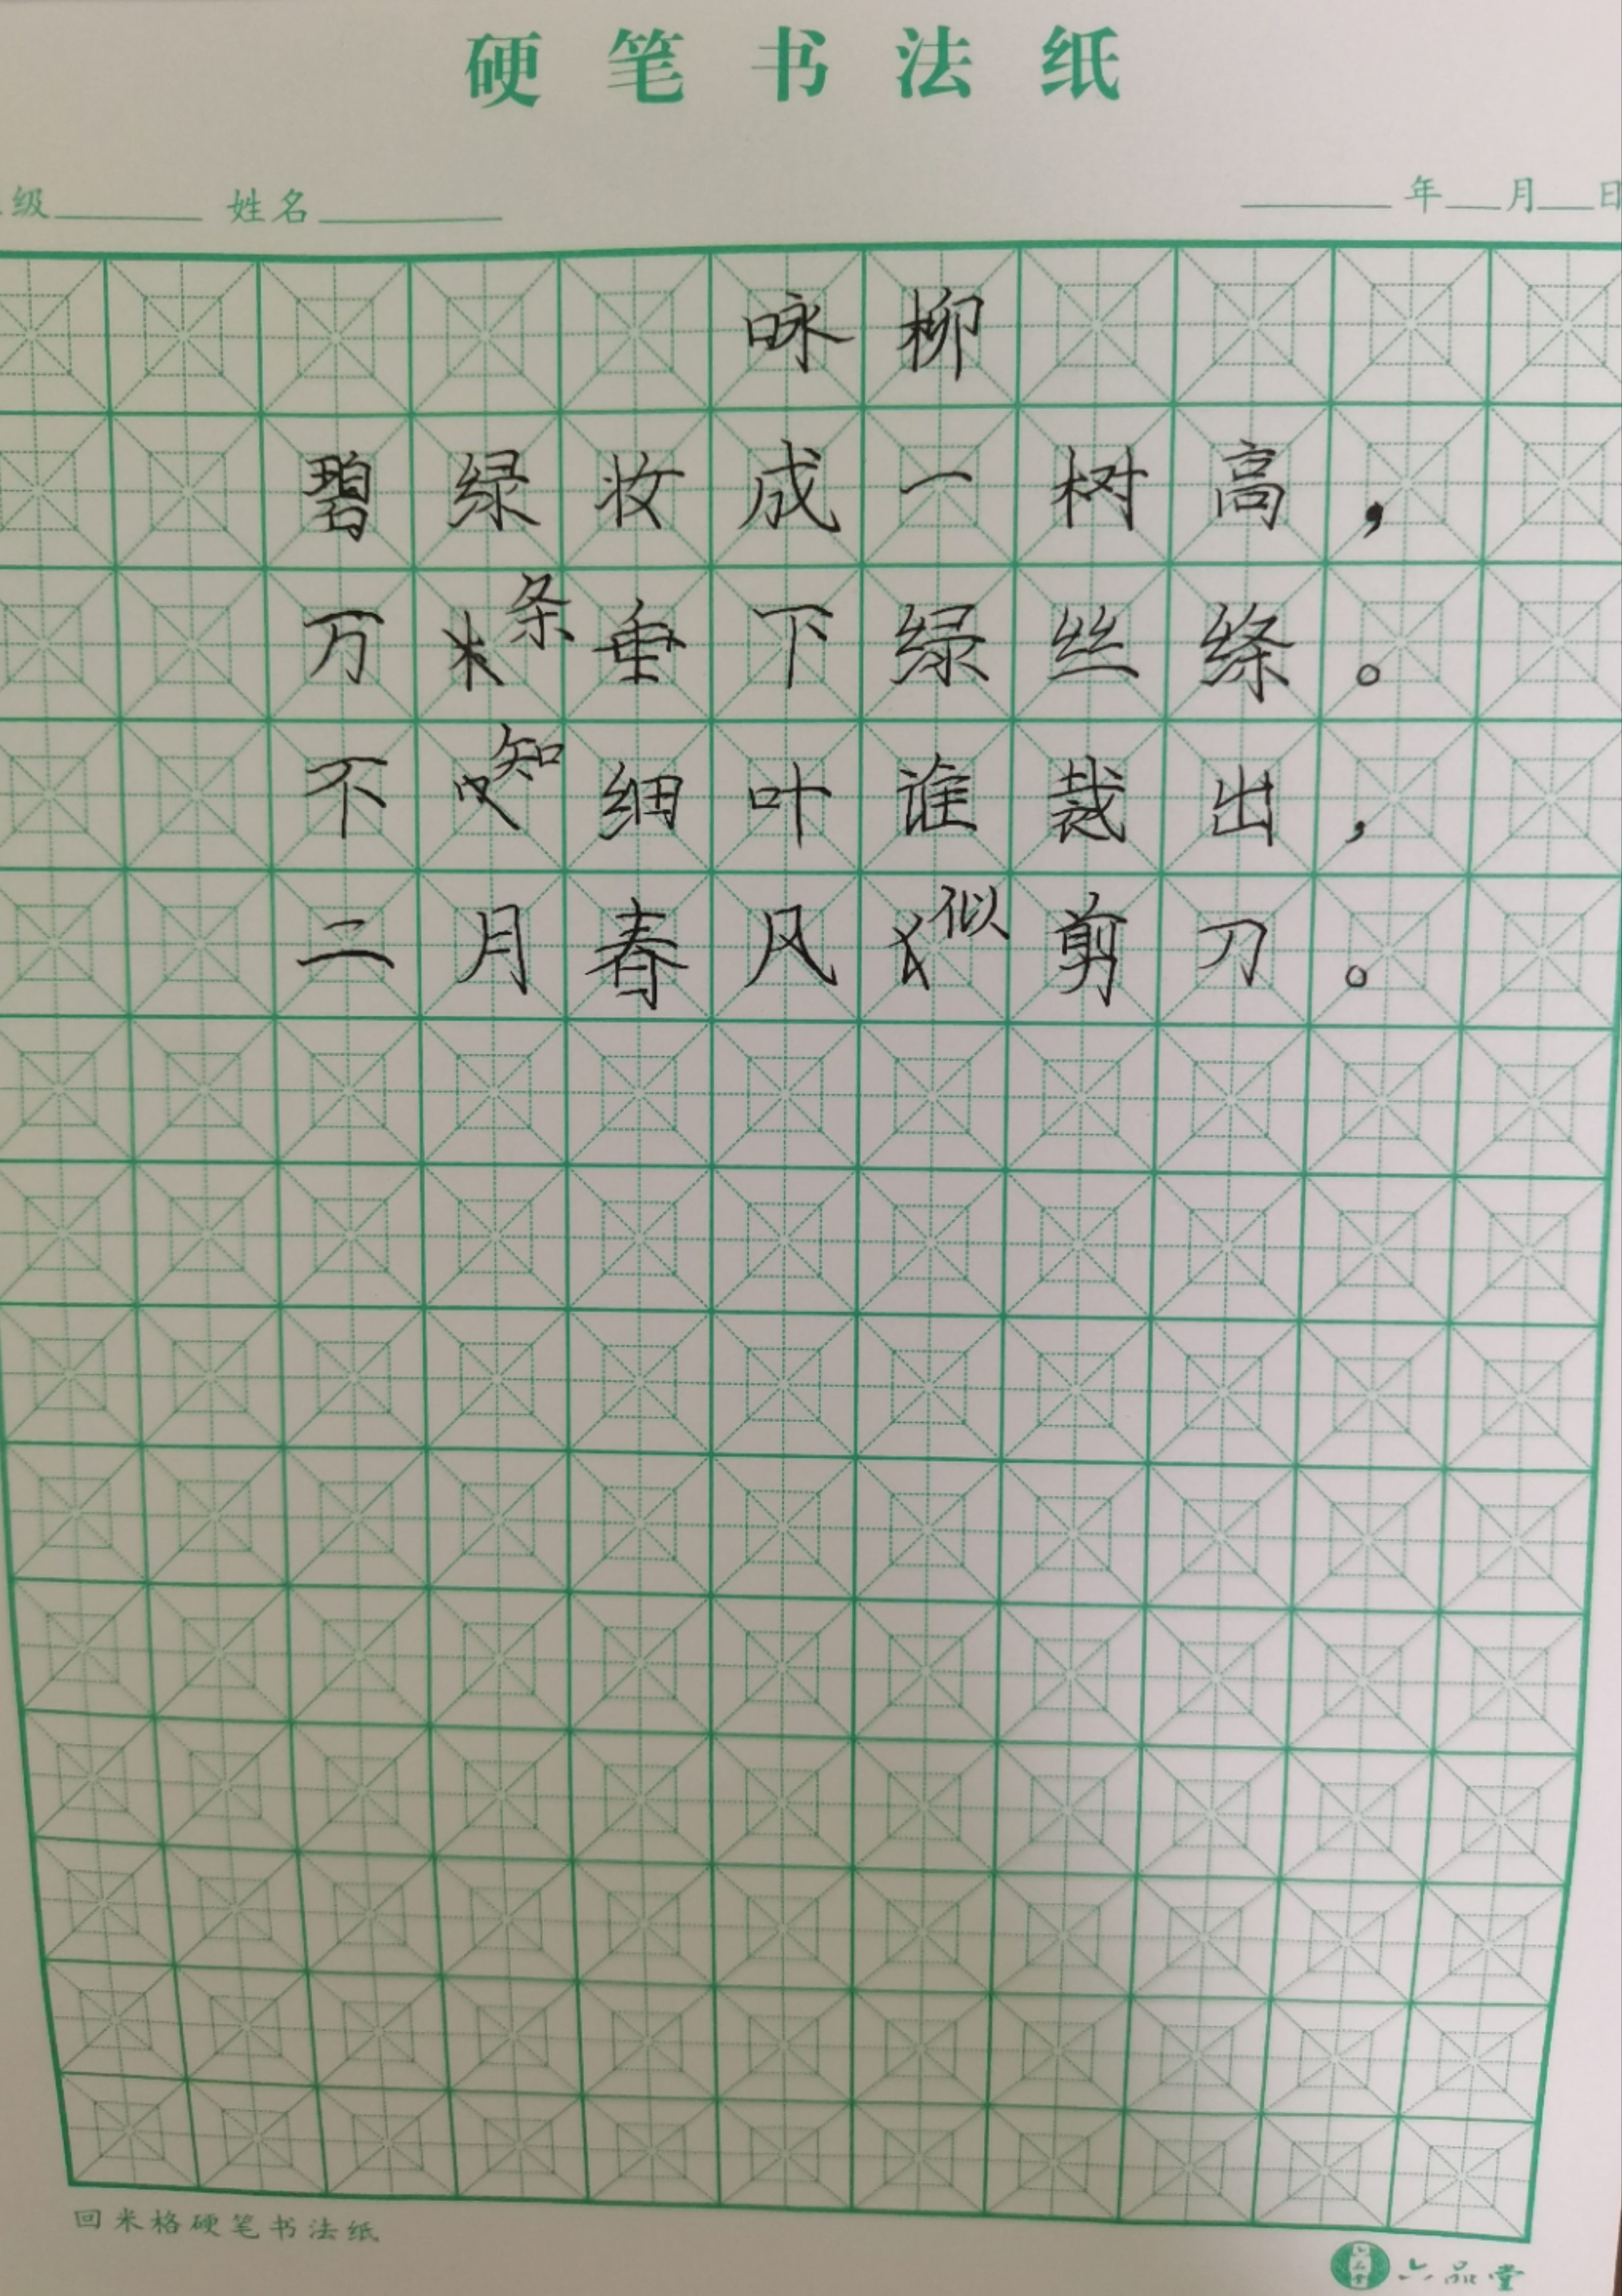 硬笔书法纸
级 姓名 年 月 日
咏柳
碧绿妆成一树高，
万条垂下绿丝绦。
不知细叶谁裁出，
二月春风似剪刀。
回米格硬笔书法纸
六品堂